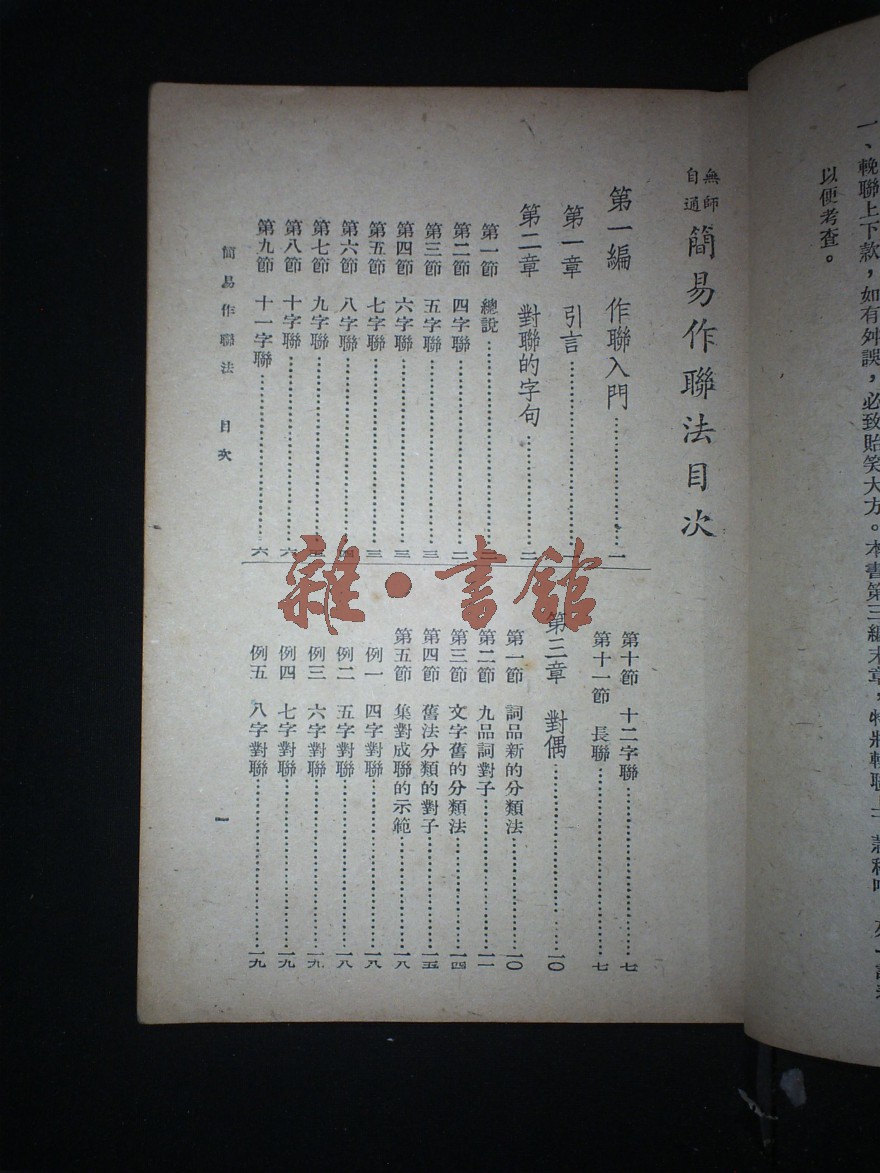 一、輓聯上下款，如有舛誤，必致貽笑大方。本書第三編末章，特將輓聯上
以便考查。
無師自通 簡易作聯法目次
第一編 作聯入門……一
第一章 引言……一
第二章 對聯的字句……二
第一節 總說……二
第二節 四字聯……二
第三節 五字聯……三
第四節 六字聯……三
第五節 七字聯……三
第六節 八字聯……四
第七節 九字聯……
第八節 十字聯……六
第九節 十一字聯……六
第十節 十二字聯……七
第十一節 長聯……七
第三章 對偶……一〇
第一節 詞品新的分類法……一〇
第二節 九品詞對子……一一
第三節 文字舊的分類法……一四
第四節 舊法分類的對子……一五
第五節 集對成聯的示範……一八
例一 四字對聯……一八
例二 五字對聯……一八
例三 六字對聯……一九
例四 七字對聯……一九
例五 八字對聯……一九
簡易作聯法 目次
一
雜·書館